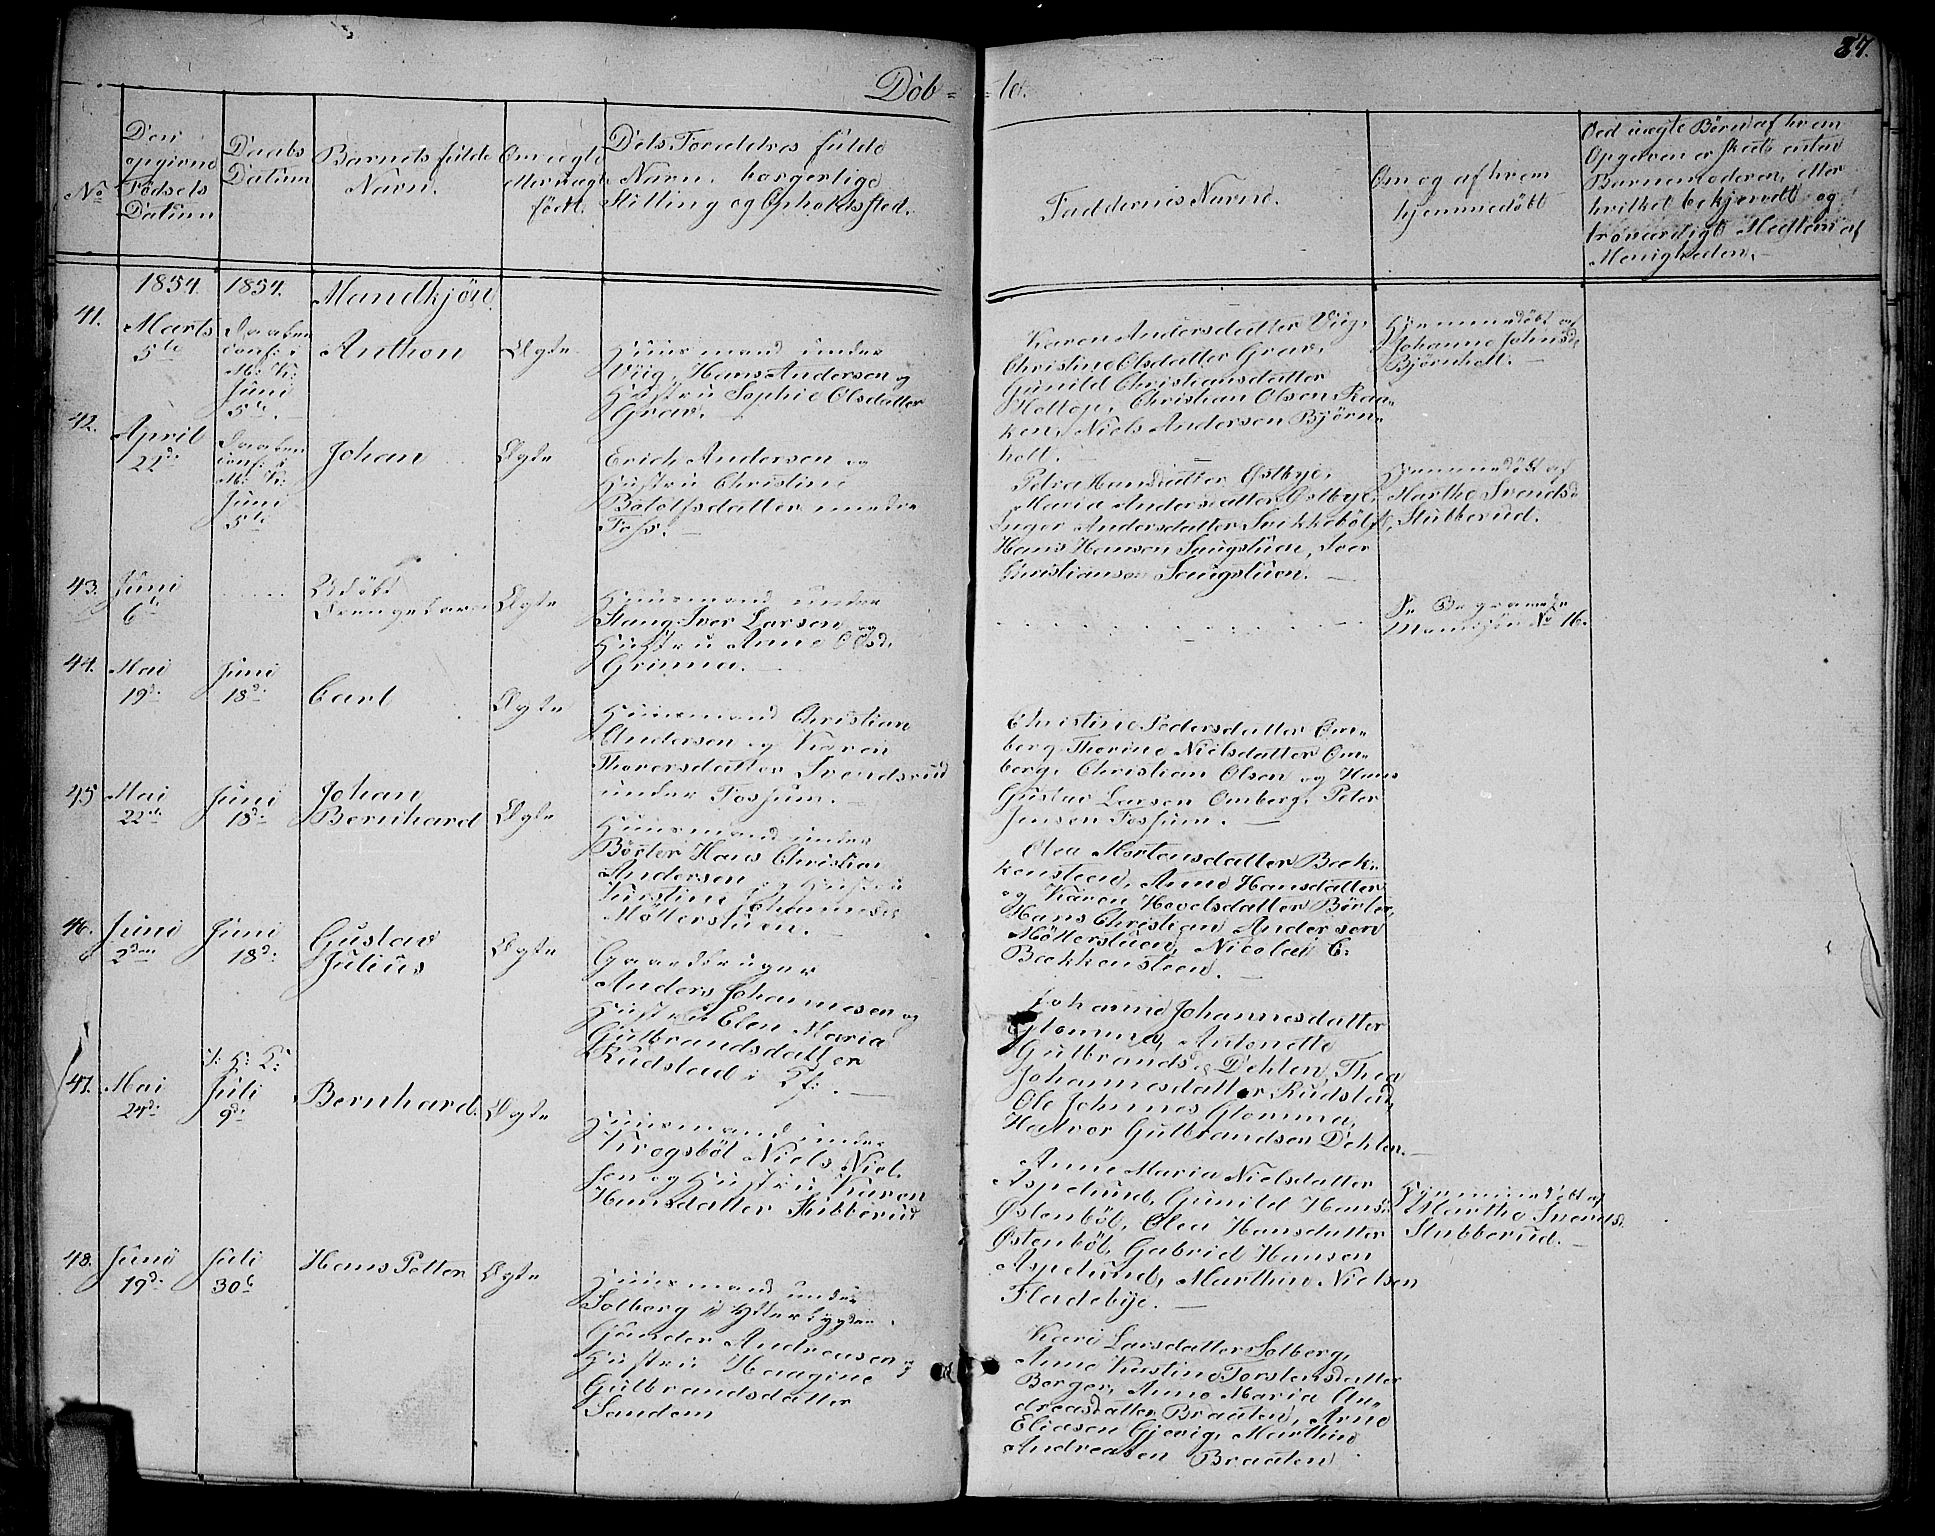 87.
Döb= =te.
No
Den
opgivne
Födsels
Datum
Daabs
Datum
Barnets fulde
Navn.
Om ægte
eller uægte
födt.
Dets Foreldres fulde
Navn, borgerlige
Stilling og Opholdssted.
Faddernes Navne.
Om og af hvem
hjemmedöbt
Ved uægte Börn af hvem
Opgaven er skeet, enten
Barnemoderen, eller
hvilket bekjendt og
troværdigt Medlem af
Menigheden.
1854. 1854. Mandkjön.
41.
Marts
5te
Daaben
conf: i
M: K:
Juni
5te
Anthon
Ægte
Huusmand under
Viig, Hans Andersen og
Hustru Sophie Olsdatter
Grav.
Karen Andersdatter Viig,
Christine Olsdatter Grav,
Gunild Christiansdatter
Christian Olsen Raa-
ken, Niels Andersen Björn-
holt.
Hjemmedöbt af
Johanne Johnsd.
Björnholt.
42.
April
22d:
Daaben
conf: i
M: K:
Juni
5te
Johan
Ægte
Erich Andersen og
Hustru Christine
Bololfsdatter nedre
Foss.
Petra Hansdatter Østbye,
Maria Andersdatter Østbye,
Inger Andersdatter Svikkeböl,
Hans Hansen Saugstuen, Iver
Christiansen Saugstuen.
Hjemmedöbt af
Marthe Svendsd.
Stubberud.
43.
Juni
6te
Udöbt
Drengebarn
Ægte
Huusmand under
Stang Iver Larsen og
Hustru Anne Olsd.
Grinna.
Se Begravede
Mandkjön No 16.
44.
Mai
19d:
Juni
18d:
Carl
Ægte
Huusmand Christian
Andersen og Karen
Thorersdatter Svendsrud
under Fossum.
Christine Pedersdatter Om-
berg, Thorine Nielsdatter Om-
berg, Christian Olsen og Hans
Gustav Larsen Omberg, Peter
Jensen Fossum.
45
Mai
22de
Juni
18d:
Johan
Bernhard
Ægte
Huusmand under
Börter Hans Christian
Andersen og Hustru
Kirstine Johannesd.
Möllerstuen.
Olea Mortensdatter Bak-
kensteen, Anne Hansdatter
og Karen Hovelsdatter Börter,
Hans Christian Andersen
Möllerstuen, Nicolai C:
Bakkensteen.
46.
Juni
2den
Juni
18d:
Gustav
Julius
Ægte
Gaardbruger
Anders Johannesen og
Hustru Elen Maria
Gulbrandsdatter
Rudstad i
Johanne Johannesdatter
Glomma, Antonette
Gulbrandsd. Dehlen, Thea
Johannesdatter Rudstad,
Ole Johnnes Glomma,
Halvor Gulbrandsen Dehlen.
47.
Mai
24d:
i: H: K:
Juli
9d:
Bernhard.
Ægte
Huusmand under
Krogsböl Niels Niel-
sen og Hustru Karen
Hansdatter Stubberud
Anne Maria Nielsdatter
Aspelund, Gunild Hansd:
Østenböl, Olea Hansdatter
Østenböl, Gabriel Hansen
Aspelund, Marthin Nielsen
Fladebye.
Hjemmedöbt af
Marthe Svends.
Stubberud.
48.
Juni
19d:
Juli
30te
Hans Petter
Ægte
Huusmand under
Solberg i Ytterbygden,
Gunder Andreasen og
Hustru Haagine
Gulbrandsdatter
Sandem
Kari Larsdatter Solberg,
Anne Kirstine Torstensdatter
Berger, Anne Maria An-
dreasdatter Braaten, Arne
Eliasen Gjevig, Marthin
Andreasen Braaten